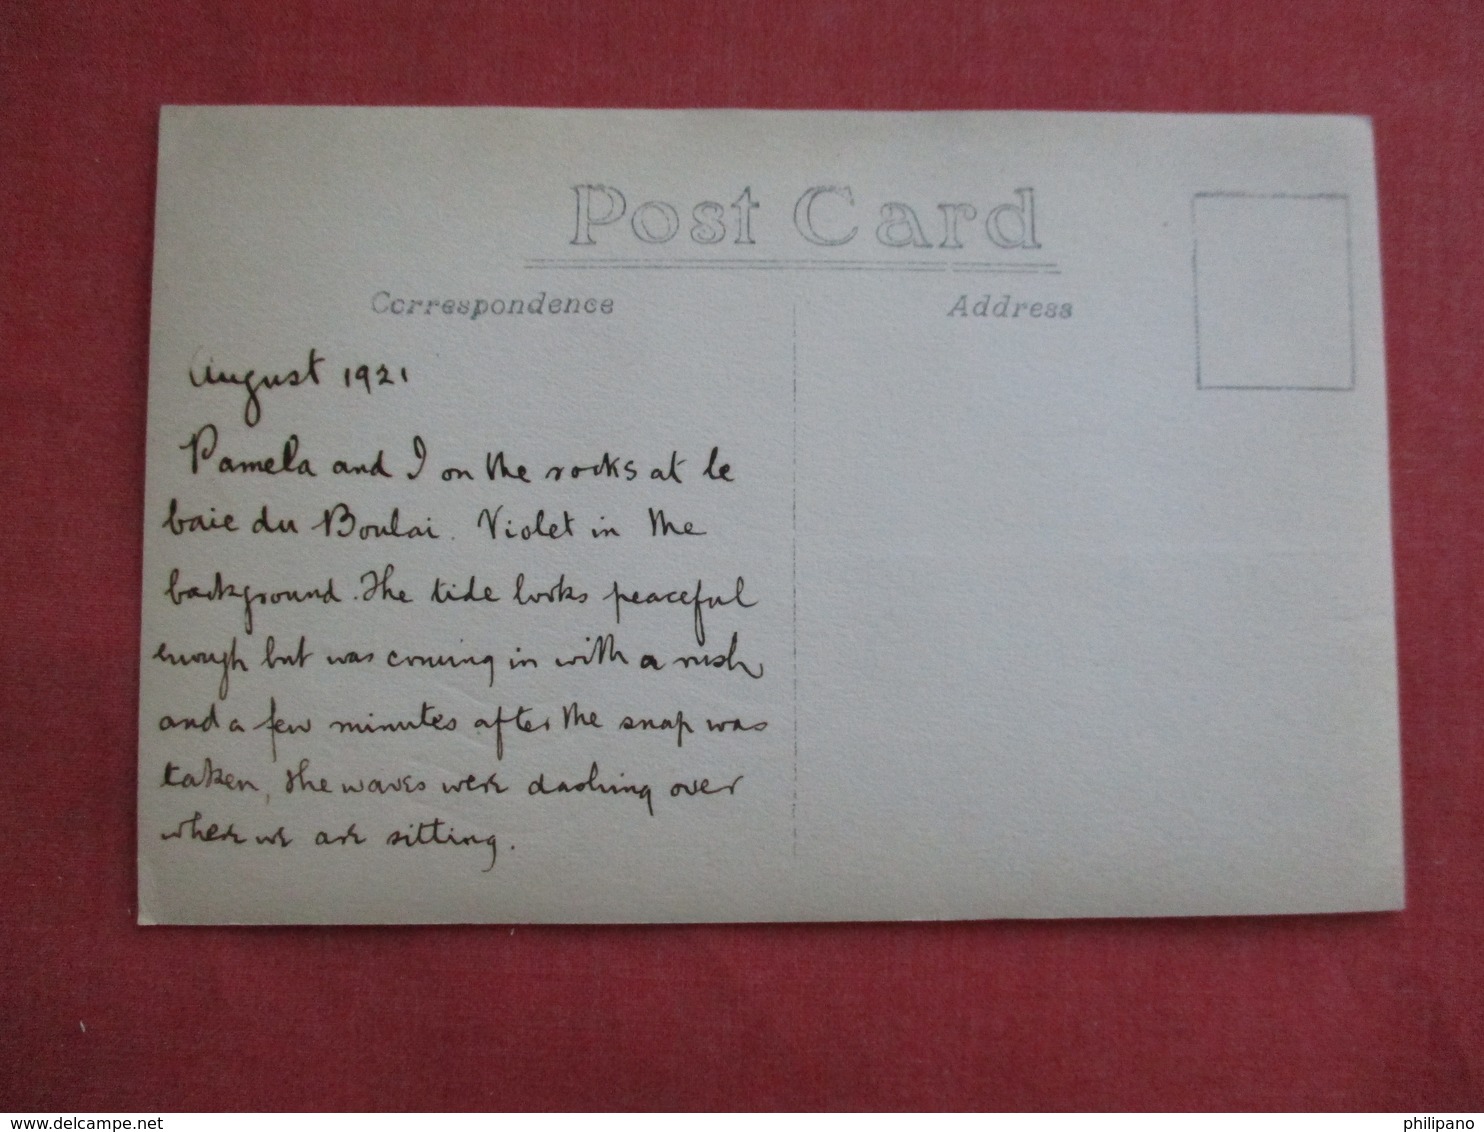 Post Card
Correspondence
Address
August 1921
Pamela and I on the rocks at le
baie du Boulai. Violet in the
background. The tide looks peaceful
enough but was coming in with a rush
and a few minutes after the snap was
taken, the waves were dashing over
where we are sitting.
www.delcampe.net
philipano